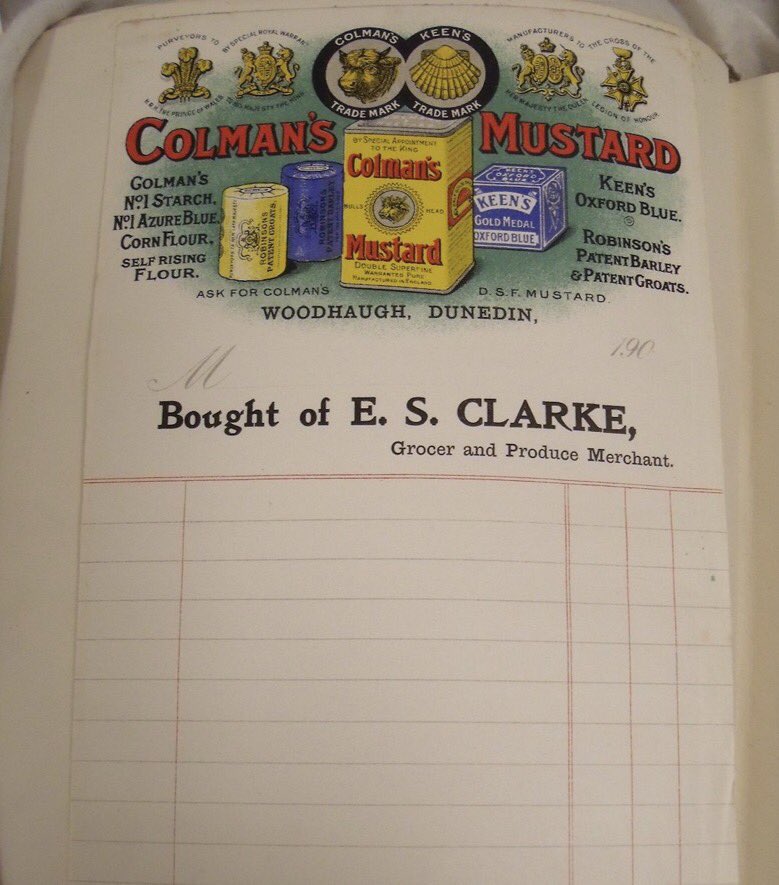 PURVEYORS TO
BY SPECIAL ROYAL WARRANT
COLMAN'S
KEEN'S
MANUFACTURERS TO
THE CROSS OF THE
H.R.H. THE PRINCE OF WALES
TO HIS MAJESTY THE KING
TRADE MARK
TRADE MARK
HER MAJESTY THE QUEEN
LEGION OF HONOUR
COLMAN'S MUSTARD
BY SPECIAL APPOINTMENT
TO THE KING
Colman's
BULLS HEAD
Mustard
DOUBLE SUPERFINE
WARRANTED PURE
MANUFACTURED IN ENGLAND
COLMAN'S
No. 1 STARCH,
No. 1 AZURE BLUE,
CORN FLOUR,
SELF RISING
FLOUR.
ROBINSON'S
PATENT GROATS.
KEEN'S
OXFORD
BLUE
KEEN'S
GOLD MEDAL
OXFORD BLUE
KEEN'S
OXFORD BLUE.
ROBINSON'S
PATENT BARLEY
& PATENT GROATS.
ASK FOR COLMANS D.S.F. MUSTARD.
WOODHAUGH, DUNEDIN,
190
M
Bought of E. S. CLARKE,
Grocer and Produce Merchant.